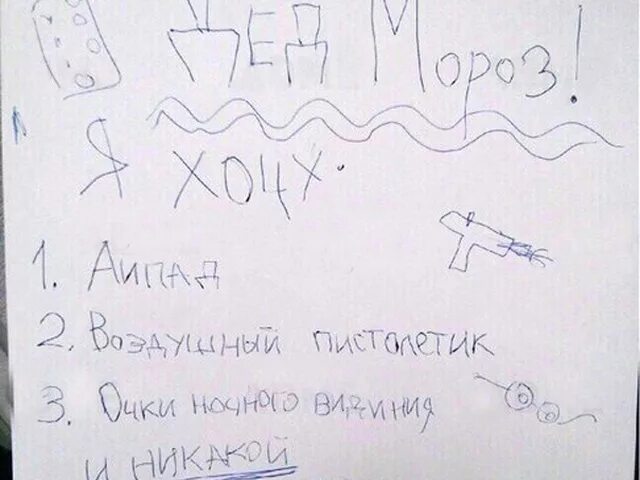 Дед Мороз!
Я хочу.
1. Аипад
2. Воздушный пистолетик
3. Очки ночного видиния
и никакой